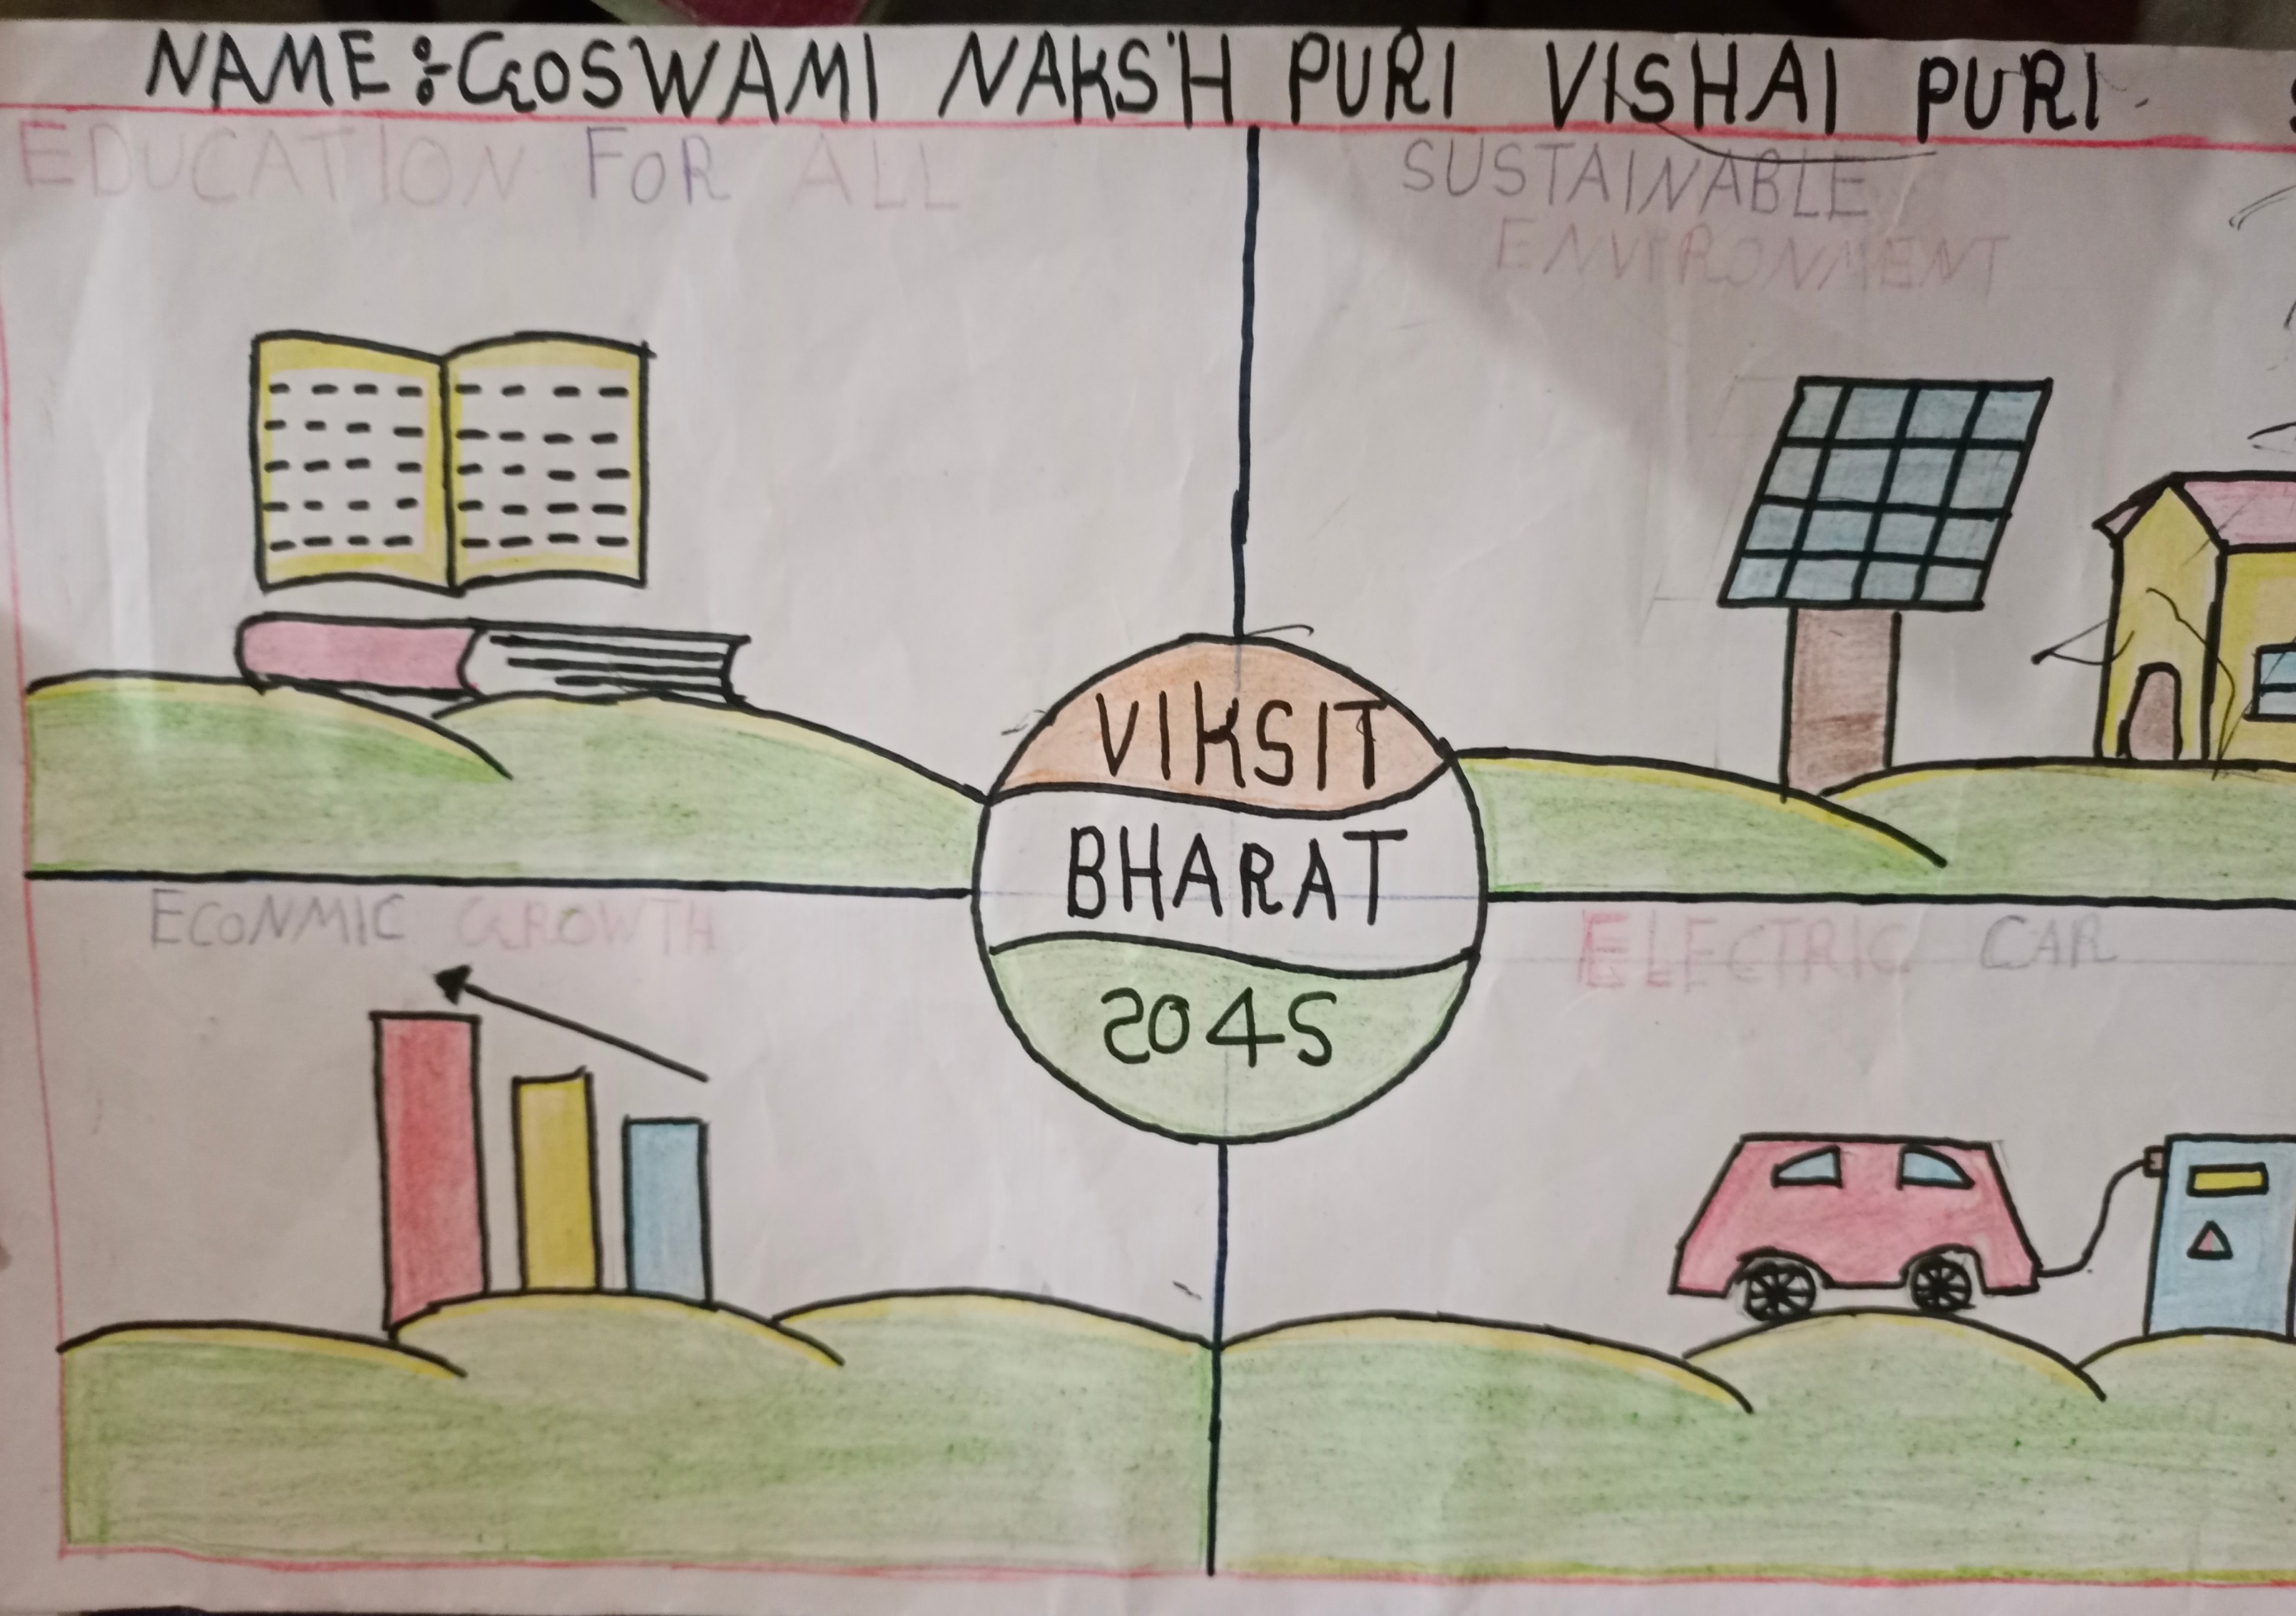 NAME :- GOSWAMI NAKSH PURI VISHAI PURI
EDUCATION FOR ALL
SUSTAINABLE
ENVIRONMENT
VIKSIT
BHARAT
2045
ECONMIC GROWTH
ELECTRIC CAR